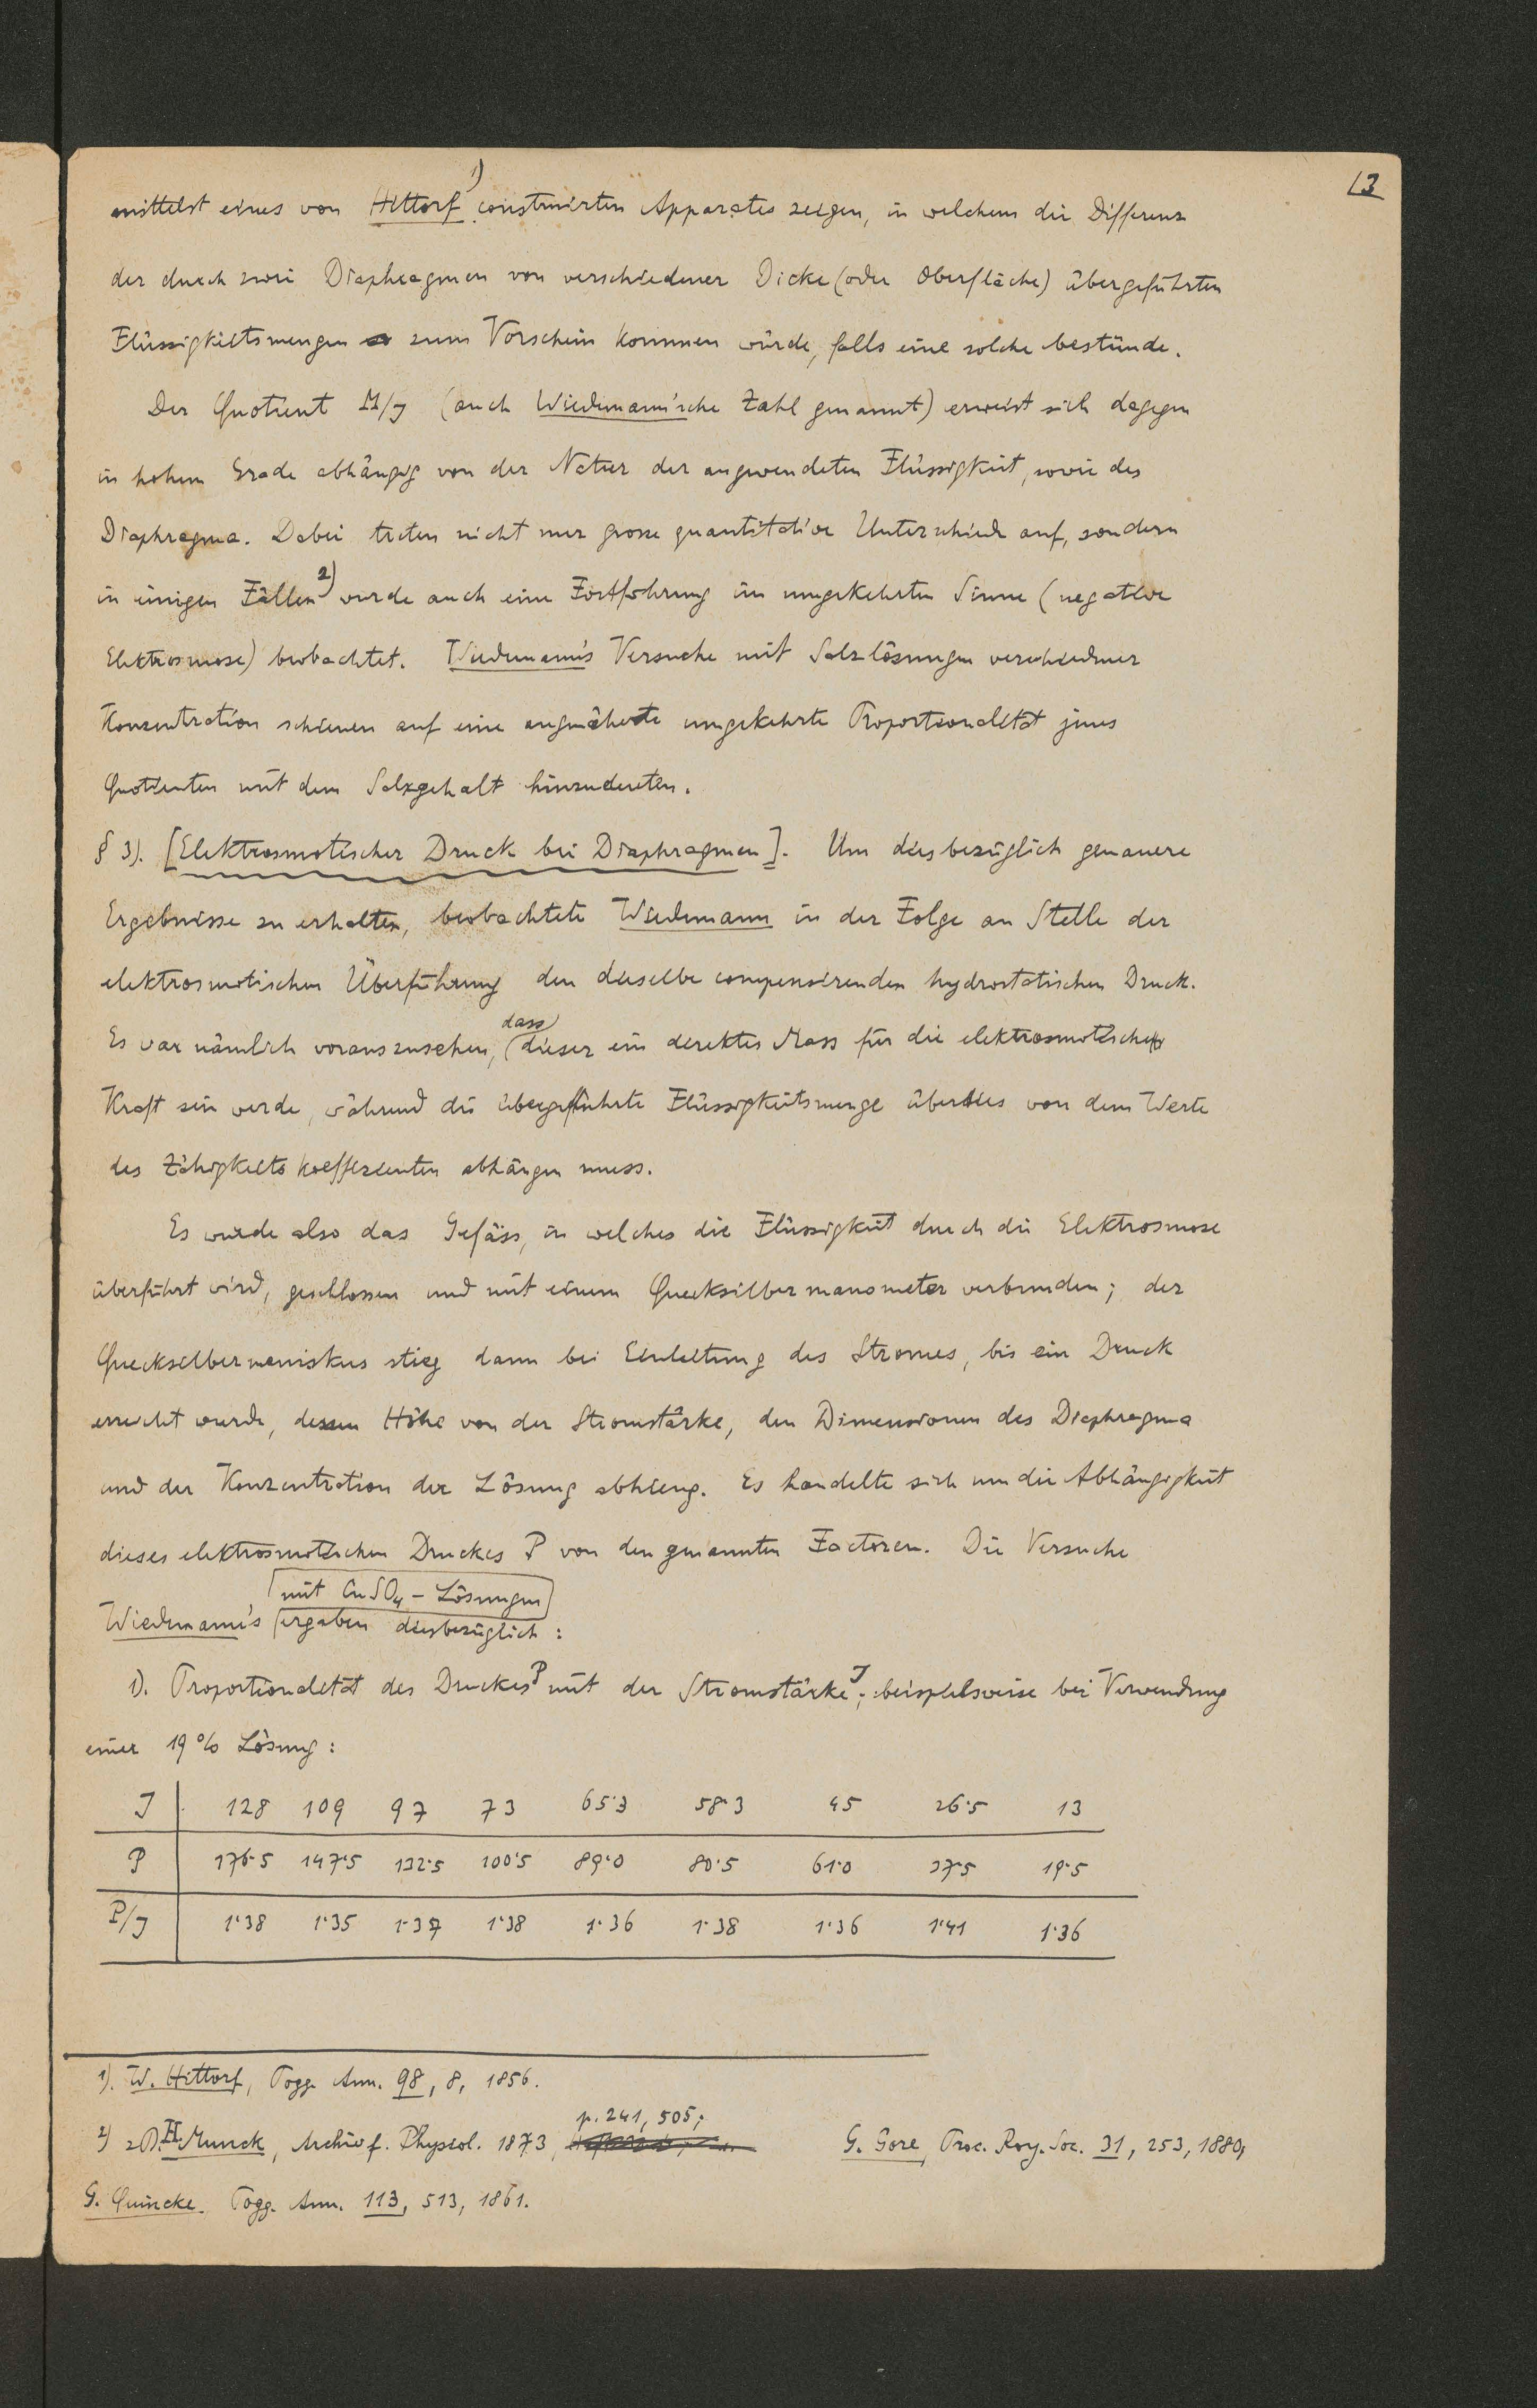 13
mittelst eines von Hittorf 1) construirten Apparates zeigen, in welchem die Differenz
der durch zwei Diaphragmen von verschiedener Dicke (oder Oberfläche) übergeführten
Flüssigkeitsmengen zum Vorschein kommen würde, falls eine solche bestünde.
Der Quotient M/J (auch Wiedemann'sche Zahl genannt) erweist sich dagegen
in hohem Grade abhängig von der Natur der angewendeten Flüssigkeit, sowie des
Diaphragma. Dabei treten nicht nur grosse quantitative Unterschiede auf, sondern
in einigen Fällen 2) wurde auch eine Fortführung im umgekehrten Sinne (negative
Elektrosmose) beobachtet. Wiedemann's Versuche mit Salzlösungen verschiedener
Konzentration schienen auf eine angenäherte umgekehrte Proportionalität jenes
Quotienten mit dem Salzgehalt hinzudeuten.
§ 3). [Elektrosmotischer Druck bei Diaphragmen]. Um diesbezüglich genauere
Ergebnisse zu erhalten, beobachtete Wiedemann in der Folge an Stelle der
elektrosmotischen Überführung den dieselbe compensirenden hydrostatischen Druck.
Es war nämlich vorauszusehen, dass dieser ein direktes Mass für die elektrosmotische
Kraft sein werde, während die übergeführte Flüssigkeitsmenge überdies von dem Werte
des Zähigkeitskoeffizienten abhängen muss.
Es wurde also das Gefäss, in welches die Flüssigkeit durch die Elektrosmose
überführt wird, geschlossen und mit einem Quecksilbermanometer verbunden; der
Quecksilbermeniskus stieg dann bei Einleitung des Stromes, bis ein Druck
erreicht wurde, dessen Höhe von der Stromstärke, den Dimensionen des Diaphragma
und der Konzentration der Lösung abhieng. Es handelte sich um die Abhängigkeit
dieses elektrosmotischen Druckes P von den genannten Factoren. Die Versuche
mit CuSO4 – Lösungen
Wiedemann's ergaben diesbezüglich:
1). Proportionalität des Druckes P mit der Stromstärke J; beispielsweise bei Verwendung
einer 19% Lösung:
J 128 109 97 73 65·3 58·3 45 26·5 13
P 176·5 147·5 132·5 100·5 89·0 80·5 61·0 37·5 19·5
P/J 1·38 1·35 1·37 1·38 1·36 1·38 1·36 1·41 1·36
1). W. Hittorf, Pogg. Ann. 98, 8, 1856.
p. 241, 505;
2) z.B. H. Munck, Archiv f. Physiol. 1873, G. Gore, Proc. Roy. Soc. 31, 253, 1880,
G. Quincke. Pogg. Ann. 113, 513, 1861.